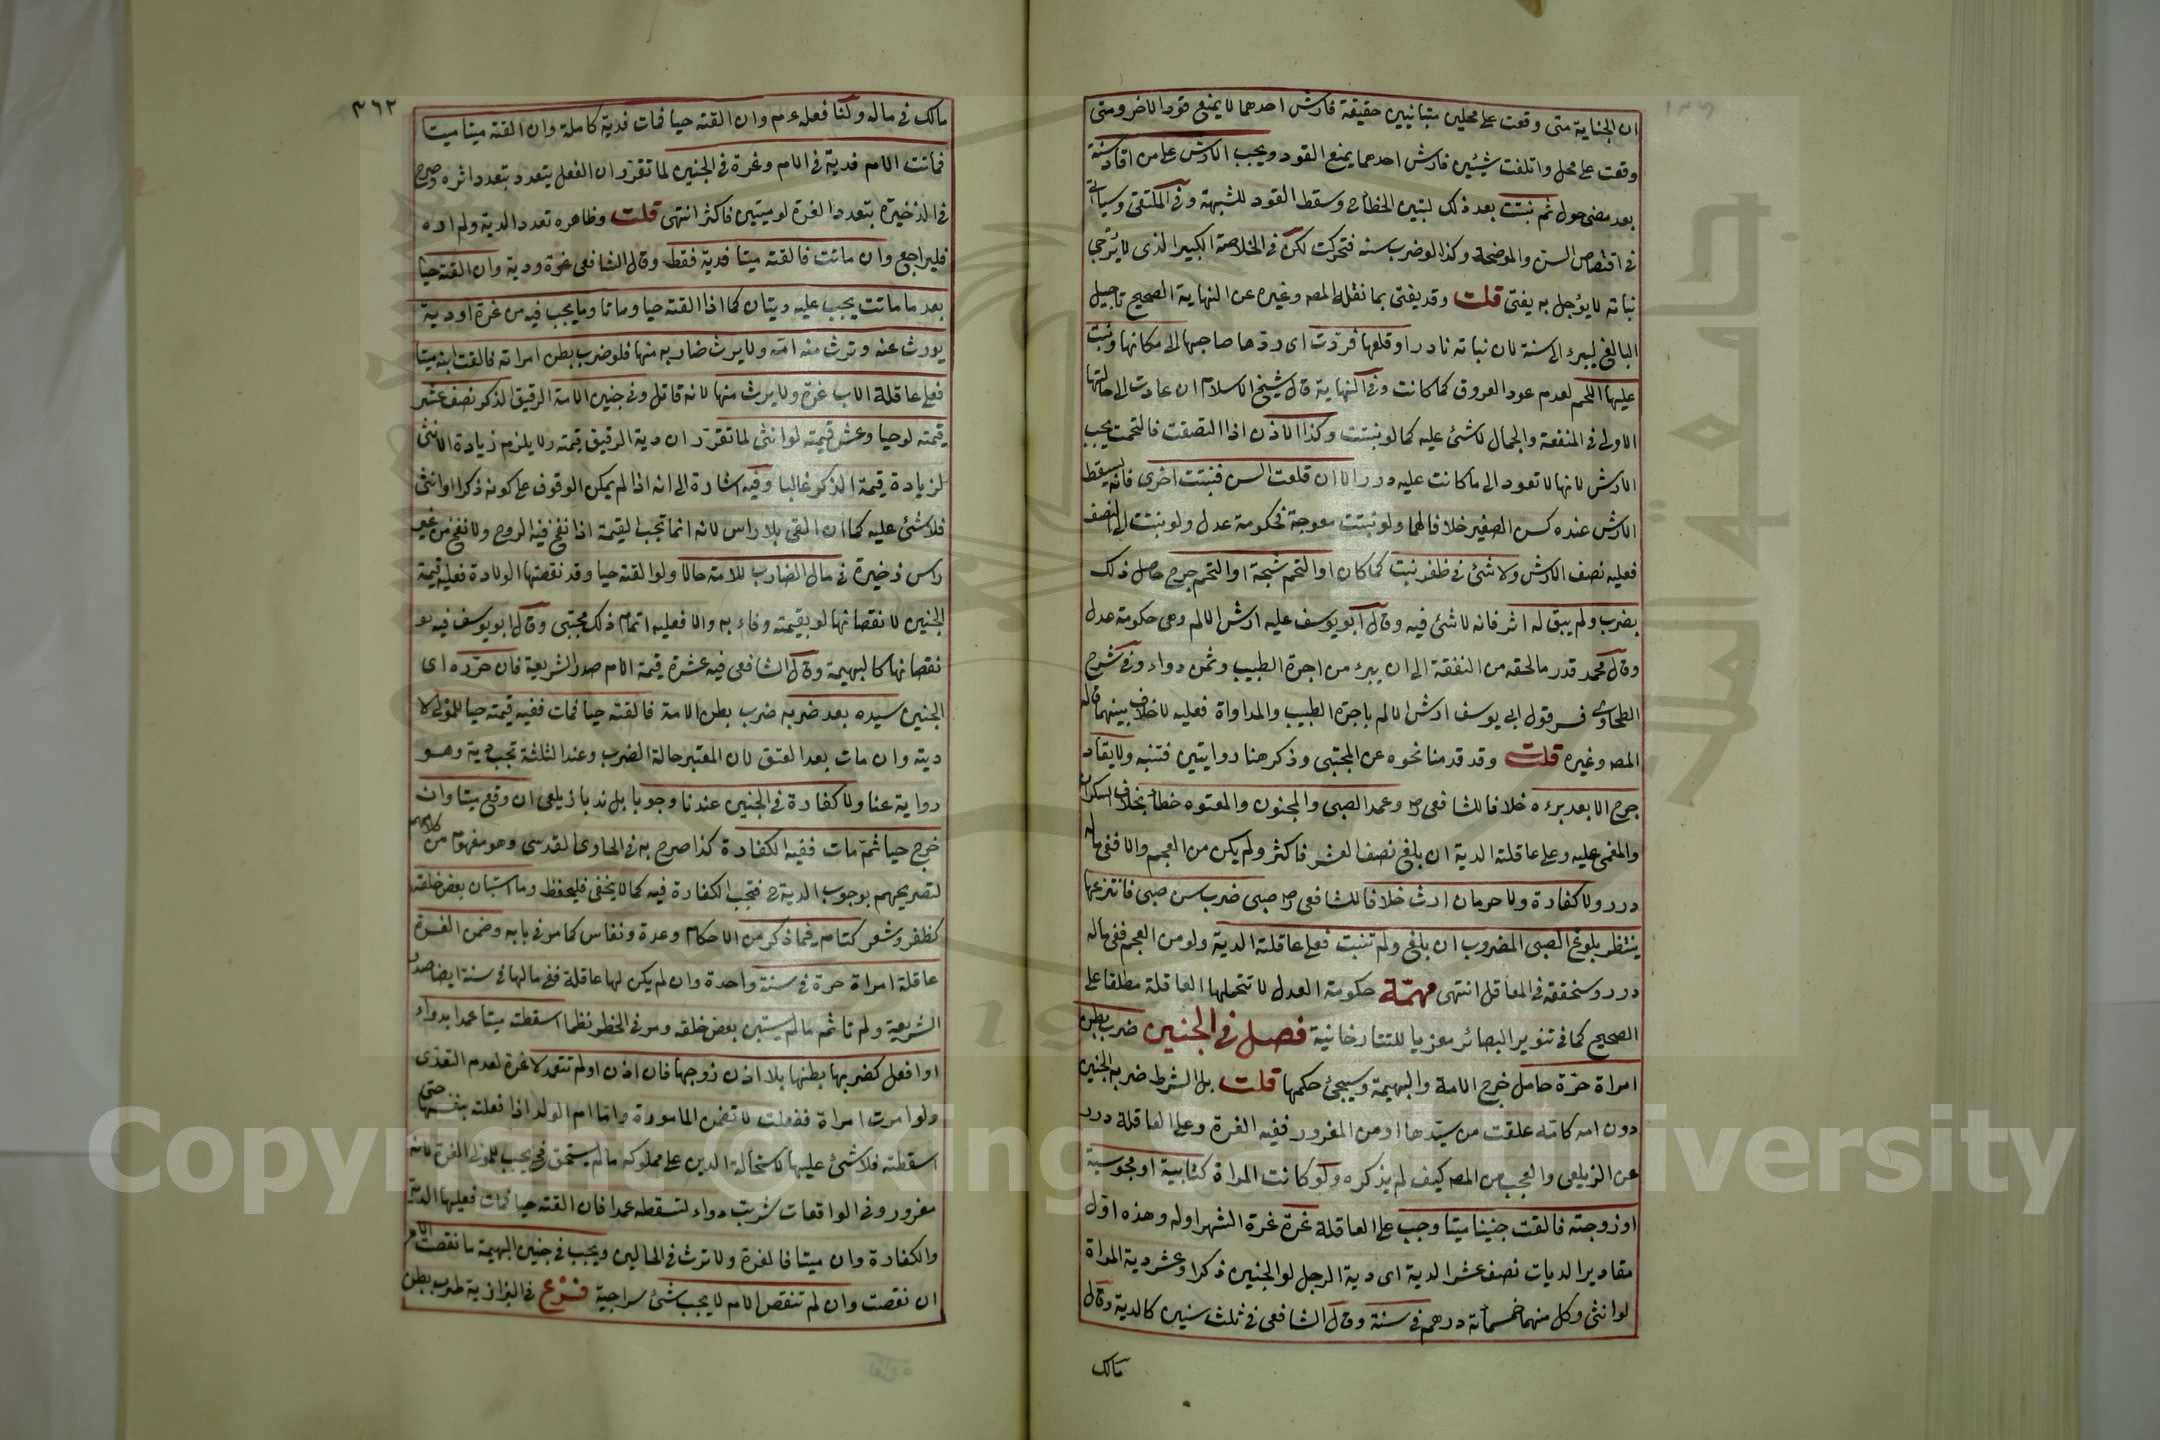 ان الجناية متى وقعت على محلين متباينين حقيقة فارش احدهما لا يمنع قود الاخر ومتى
وقعت على محل واتلفت شيئين فارش احدهما يمنع القود ويجب الارش على من اقاد سنه
بعد مضى حول ثم نبتت بعد ذلك لتبين الخطاح وسقط القود للشبهة وفى الملتقى وسياتى
فى اقتصاص السن والموضحة وكذا لو ضرب سنه فتحركت لكن فى الخلاصة الكبير الذى لا يرجى
نباته لا يؤجل به يفتى قلت وقد يفتى بما نقله المص وغيره عن النهاية الصحيح تاجيل
البالغ ليبرء الى سنة لان نباته نادر او قلعها فردت اى ردها صاحبها الى مكانها ونبت
عليها اللحم لعدم عود العروق كما كانت وفى النهاية قال شيخ الاسلام ان عادت الى حالتها
الاولى فى المنفعة والجمال لاشئ عليه كما لو نبتت وكذا الاذن اذا التصقت فالتحمت يجب
الارش لانها لا تعود الى ما كانت عليه درر الا ان قلعت السن فنبتت اخرى فانه يسقط
الارش عنده كسن الصغير خلافا لهما ولو نبتت معوجة فحكومة عدل ولو نبتت الى النصف
فعليه نصف الارش ولا شئ فى ظفر نبت كما كان او التحم شجة او التحم جرح حاصل ذلك
بضرب ولم يبق له اثر فانه لا شئ فيه وقال ابو يوسف عليه ارش الالم وهى حكومة عدل
وقال محمد قدر ما لحقه من النفقة الى ان يبرء من اجرة الطبيب وثمن دواء وفى شرح
الطحاوى فسر قول ابى يوسف ارش الالم باجرة الطبيب والمداواة فعليه لا خلاف بينهما قاله
المص وغيره قلت وقد قدمنا نحوه عن المجتبى وذكر هنا روايتين فتنبه ولا يقاد
جرح الا بعد برءه خلافا للشافعى رح وعمد الصبى والمجنون والمعتوه خطأ بخلاف السكران
والمغمى عليه وعلى عاقلته الدية ان بلغ نصف العشر فاكثر ولم يكن من العجم والا ففى ماله
درر ولا كفارة ولا حرمان ارث خلافا للشافعى رح صبى ضرب سن صبى فانتزعها
ينتظر بلوغ الصبى المضروب ان بلغ ولم تنبت فعلى عاقلته الدية ولو من العجم ففى ماله
درر وسنحققه فى المعاقل انتهى مهمة حكومة العدل لا تتحملها العاقلة مطلقا على
الصحيح كما فى تنوير البصائر معزيا للتتارخانية فصل فى الجنين ضرب بطن
امراة حرة حامل خرج الامة والبهيمة وسيجئ حكمها قلت بل الشرط ضربه الجنين
دون امه كامة علقت من سيدها او من المغرور ففيه الغرة وعلى العاقلة درر
عن الزيلعى والعجب من المص كيف لم يذكره ولو كانت المراة كتابية او مجوسية
او زوجته فالقت جنينا ميتا وجب على العاقلة غرة غرة الشهر اوله وهذه اول
مقادير الديات نصف عشر الدية اى دية الرجل لو الجنين ذكرا وعشر دية المراة
لو انثى وكل منهما خمسمائة درهم فى سنة وقال الشافعى فى ثلث سنين كالدية وقال
مالك
٣٦٢
مالك فى ماله ولنا فعله عم وان القته حيا فمات فدية كاملة وان القته ميتا ميتا
فماتت الام فدية فى الام وغرة فى الجنين لما تقرر ان الفعل يتعدد بتعدد اثره وصرح
فى الذخيرة بتعدد الغرة لو ميتين فاكثر انتهى قلت وظاهره تعدد الدية ولم اره
فليراجع وان ماتت فالقته ميتا فدية فقط وقال الشافعى غرة ودية وان القته حيا
بعد ما ماتت يجب عليه ديتان كما اذا القته حيا وماتا وما يجب فيه من غرة او دية
يورث عنه وترث منه امه ولا يرث ضاربه منها فلو ضرب بطن امراته فالقت ابنه ميتا
فعلى عاقلة الاب غرة ولا يرث منها لانه قاتل وفى جنين الامة الرقيق الذكر نصف عشر
قيمته لو حيا وعشر قيمته لو انثى لما تقرر ان دية الرقيق قيمته ولا يلزم زيادة الانثى
لزيادة قيمة الذكر غالبا وفيه اشارة الى انه اذا لم يمكن الوقوف على كونه ذكرا او انثى
فلا شئ عليه كما ان القى بلا راس لانه انما تجب القيمة اذا نفخ فيه الروح ولا نفخ من غير
راس ذخيرة فى مال الضارب للامة حالا ولو القته حيا وقد نقصتها الولادة فعليه قيمة
الجنين لا نقصانها لو بقيمته وفاء به والا فعليه اتمام ذلك مجتبى وقال ابو يوسف فيه
نقصانها كالبهيمة وقال الشافعى فيه عشرة قيمة الام صدر الشريعة فان حرره اى
الجنين سيده بعد ضربه ضرب بطن الامة فالقته حيا فمات ففيه قيمته حيا للمولى لا
ديته وان مات بعد العتق لان المعتبر حالة الضرب وعند الثلثة تجب دية وهو
رواية عنا ولا كفارة فى الجنين عندنا وجوبا بل ندبا زيلعى ان وقع ميتا وان
خرج حيا ثم مات ففيه الكفارة كذا صرح به فى الحاوى القدسى وهو مفهوم من كلامهم
لتصريحهم بوجوب الدية ح فتجب الكفارة فيه كما لا يخفى فليحفظ وما استبان بعض خلقه
كظفر وشعر كتام فيما ذكر من الاحكام وعدة ونفاس كما مر فى بابه وضمن الغرة
عاقلة امراة حرة فى سنة واحدة وان لم يكن لها عاقلة ففى مالها فى سنة ايضا صدر
الشريعة ولم تاثم ما لم يستبن بعض خلقه ومر فى الحظر نظما اسقطته ميتا عمدا بدواء
او افعل كضربها بطنها بلا اذن زوجها فان اذن او لم تتعمد لا غرة لعدم التعدى
ولو امرت امراة ففعلت لا تضمن المامورة واما ام الولد اذا فعلته بنفسها حتى
اسقطته فلا شئ عليها لاستحالة الدين على مملوكه ما لم يستحق فح يجب للمولى الغرة لانه
مغرور وفى الواقعات شربت دواء لتسقطه عمدا فان القته حيا فمات فعليها الدية
والكفارة وان ميتا فالغرة ولا ترث فى الحالين ويجب فى جنين البهيمة ما نقصت الام
ان نقصت وان لم تنقص الام لا يجب شئ سراجية فرع فى البزازية ضرب بطن
Copyright © King Saud University